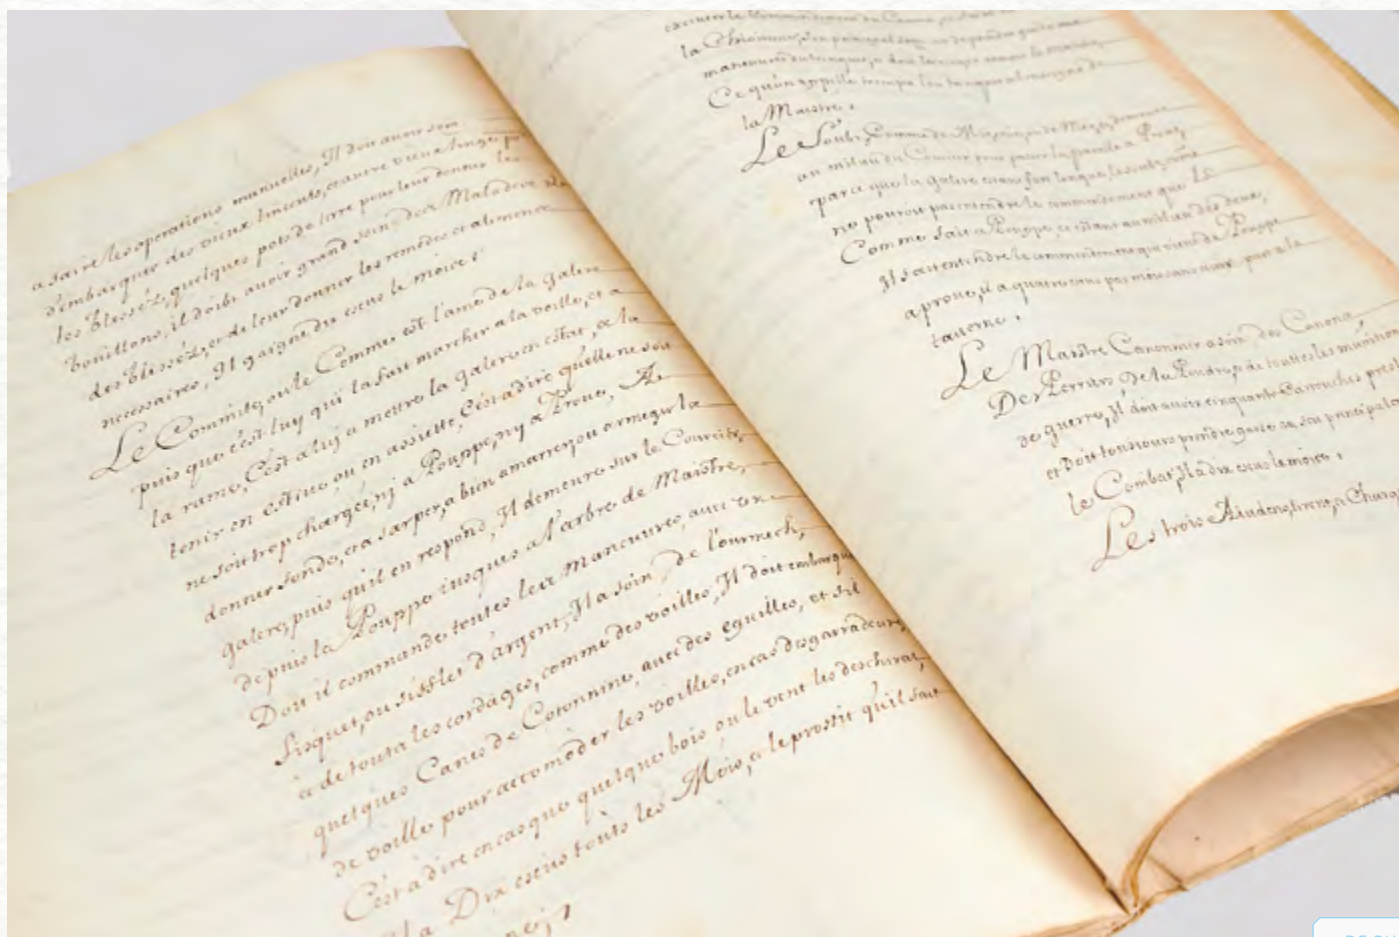 a faire les operations manuelles, Il doit avoir soin
d'embarquer des vieux linceuls, et autre vieux linge pour
les blesséz, quelques pots de terre pour leur donner les
bouillons, il doibt avoir grand soin des Malades et
des blesséz, et de leur donner les remedes et alimens
necessaires, Il gaigne dix escus le mois
Le Commite, ou le Comme est l'ame de la galere
puis que c'est luy qui la fait marcher a la voille, et a
la rame, C'est a luy a mettre la galere en estat, et la
tenir en estive ou en assiette, C'est a dire qu'elle ne soit
ne soit trop chargée, ny a Pouppe, ny a Proue, A
donner fonde, et a sarper, a bien amarrer ou ormeger la
galere, puis qu'il en respond, Il demeure sur le Coursite,
depuis la Pouppe jusques a l'arbre de Maistre,
Dou il commande toutes les manœuvres, avec un
sisquet, ou sifflet d'argent, Il a soin de l'ourmech,
et de touts les cordages, comme des voilles, Il doit embarquer
quelques Canes de Cotonnine, avec des eguilles, et fil
de voille pour accomoder les voilles, en cas desgarradeure,
C'est a dire en cas que quelque bois, ou le vent les deschirat,
Il a Dix escus touts les Mois, et le proffit qu'il fait
la Chiourme,
manœuvre
Ce qu'on appelle
la Maistre.
Le Soubs Comme de Misanie, ou de Mezze, demeure
au milieu du Coursier pour passer la parole a Proue,
parce que la galere estant fort longue, les
ne pouroit pas entendre le commandement que le
Comme fait a Pouppe, et estant au milieu des deux,
Il fait entendre le commandement qui vient de Pouppe
a proue, il a quatre escus par mois sans avoir part a la
taverne.
Le Maistre Canonnier a soin des Canons
Des Perriers De la Poudre, et de touttes les munitions
de guerre, Il doit avoir cinquante Cartouches prest
et Doit tousiours prendre garde
le Combat, Il a dix escus le mois.
Les trois Aiudans, tirent, et Charg